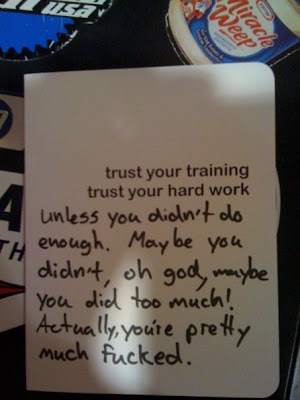 USA
Miracle
Weep
trust your training
trust your hard work
Unless you didn't do
enough. Maybe you
didn't, oh god, maybe
you did too much!
Actually, you're pretty
much fucked.
A
TH